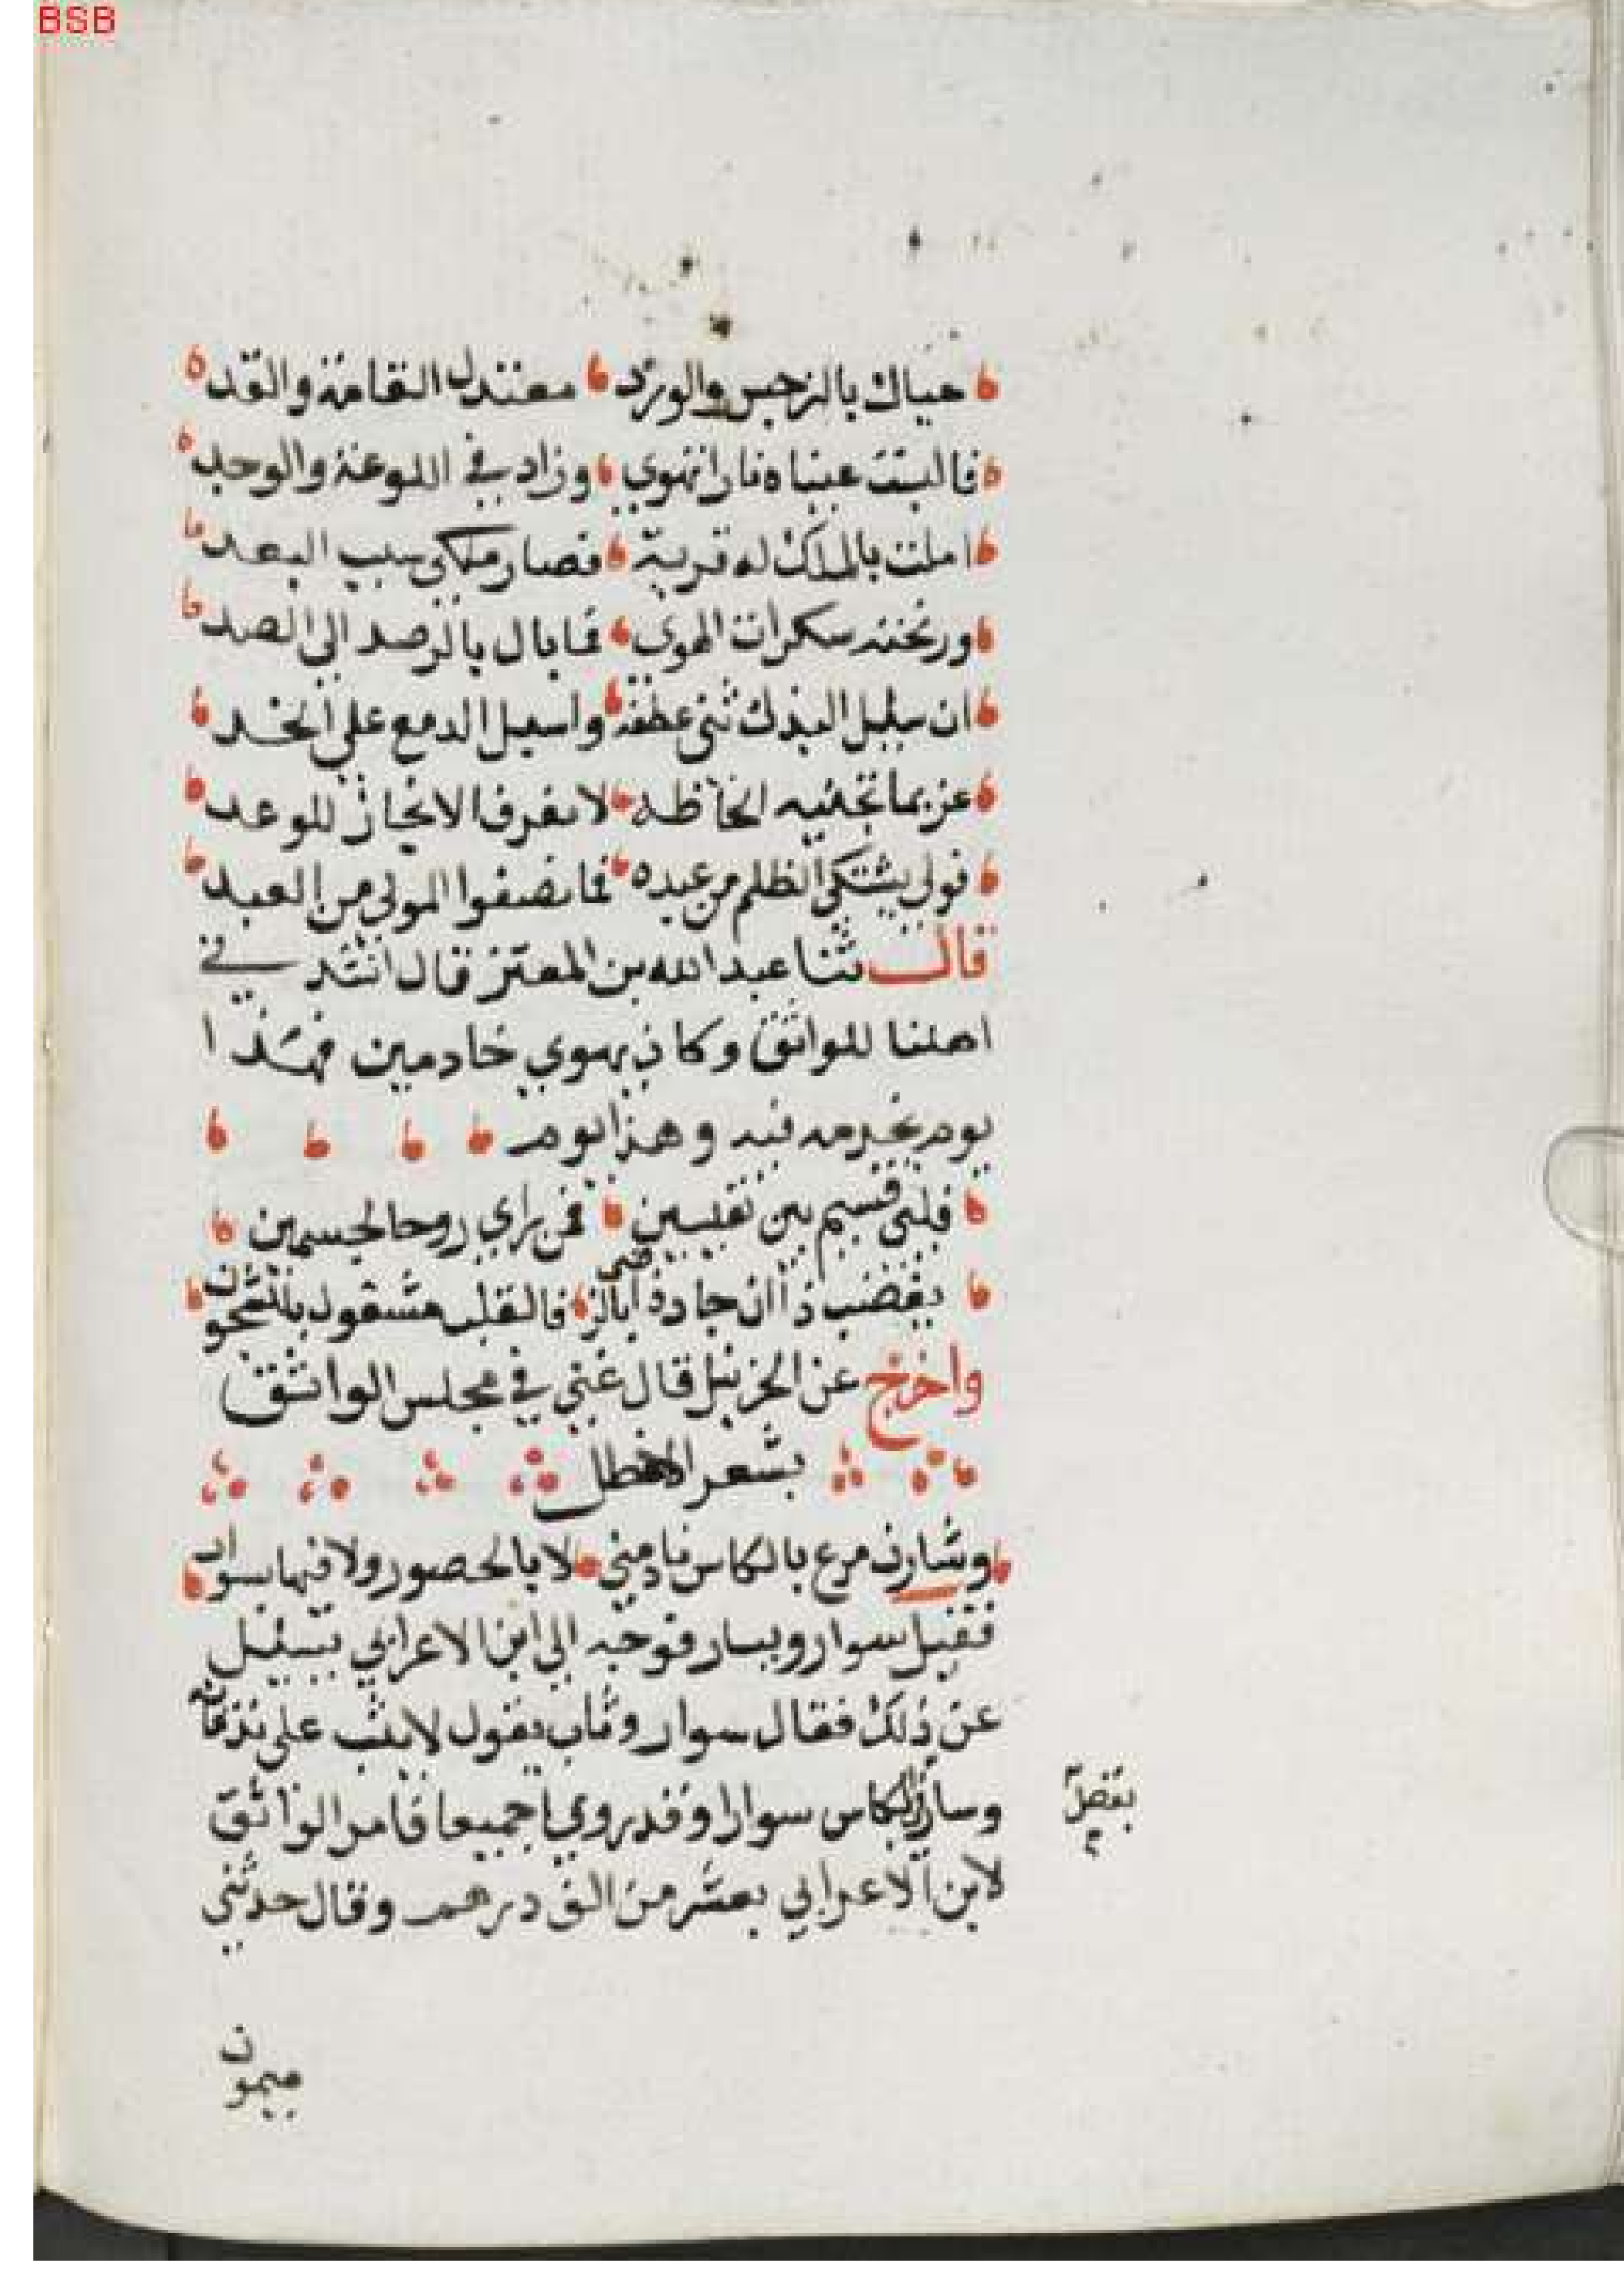 BSB
حياك بالنرجس والورد معتدل القامة والقد
فالبت عيناه نار الهوي وزاد في اللوعة والوجد
املت بالملك له قربة فصار ملكي سبب البعد
ورنحته سكرات الهوي فمابال بالرصد الي الصد
ان سئل البذل ثني عطفه واسبل الدمع علي الخد
عز بما تجنيه الحاظه لا يعرف الانجاز للوعد
مولي يشتكي الظلم من عبده فما نصفوا المولي من العبد
قال ثنا عبد الله بن المعتز قال انشد في
اهلنا للواثق وكان يهوي خادمين فهذا
يوم يخدمه فيه وهذا يوم
قلبي قسيم بين نفسين فمن راي روحا لجسمين
يغضب ذا ان جاد ذا بالرضي فالقلب مشغول بالشجون
واخرج عن الحزنبل قال غني في مجلس الواثق
بشعر الاخطل
وشارن مرع بالكاس نادمني لا بالحصور ولا فيها بسوار
فقيل سوار ويسار فوجه الي ابن الاعرابي يسئل
عن ذلك فقال سوار وثاب يقول لا يثب علي ندمائه
وسار الكاس سوارا وقد رويا جميعا فامر الواثق
بفضل
لابن الاعرابي بعشرمن الف درهم وقال حدثني
ميمون